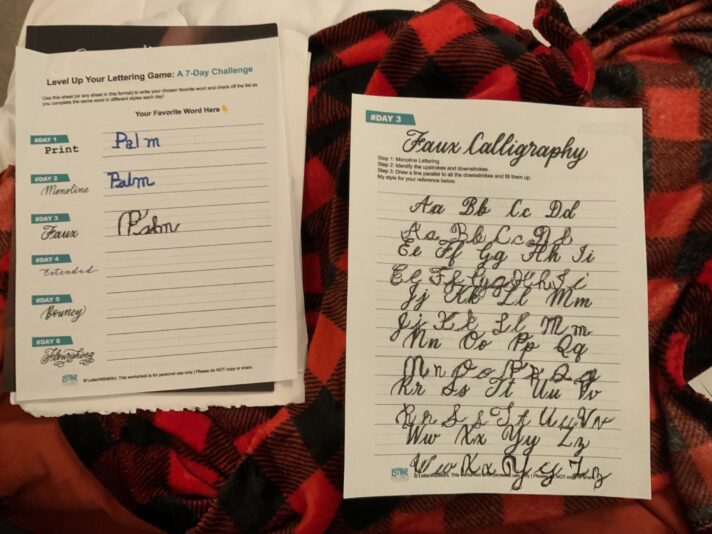 Level Up Your Lettering Game: A 7-Day Challenge
Use this sheet (or any sheet in this format) to write your chosen favorite word and check off the list as
you complete the same word in different styles each day!
Your Favorite Word Here 👇
#DAY 1
Print
Palm
#DAY 2
Monoline
Palm
#DAY 3
Faux
Palm
#DAY 4
Extended
#DAY 5
Bouncy
#DAY 6
Flourishing
This worksheet is for personal use only | Please do NOT copy or share.
#DAY 3
Faux Calligraphy
Step 1: Monoline Lettering
Step 2: Identify the upstrokes and downstrokes.
Step 3: Draw a line parallel to all the downstrokes and fill them up.
My style for your reference below.
Aa Bb Cc Dd
Aa Bb Cc Dd
Ee Ff Gg Hh Ii
Ee Ff Gg Hh Ii
Jj Kk Ll Mm
Jj Kk Ll Mm
Nn Oo Pp Qq
Nn Oo Pp Qq
Rr Ss Tt Uu Vv
Rr Ss Tt Uu Vv
Ww Xx Yy Zz
Ww Xx Yy Zz